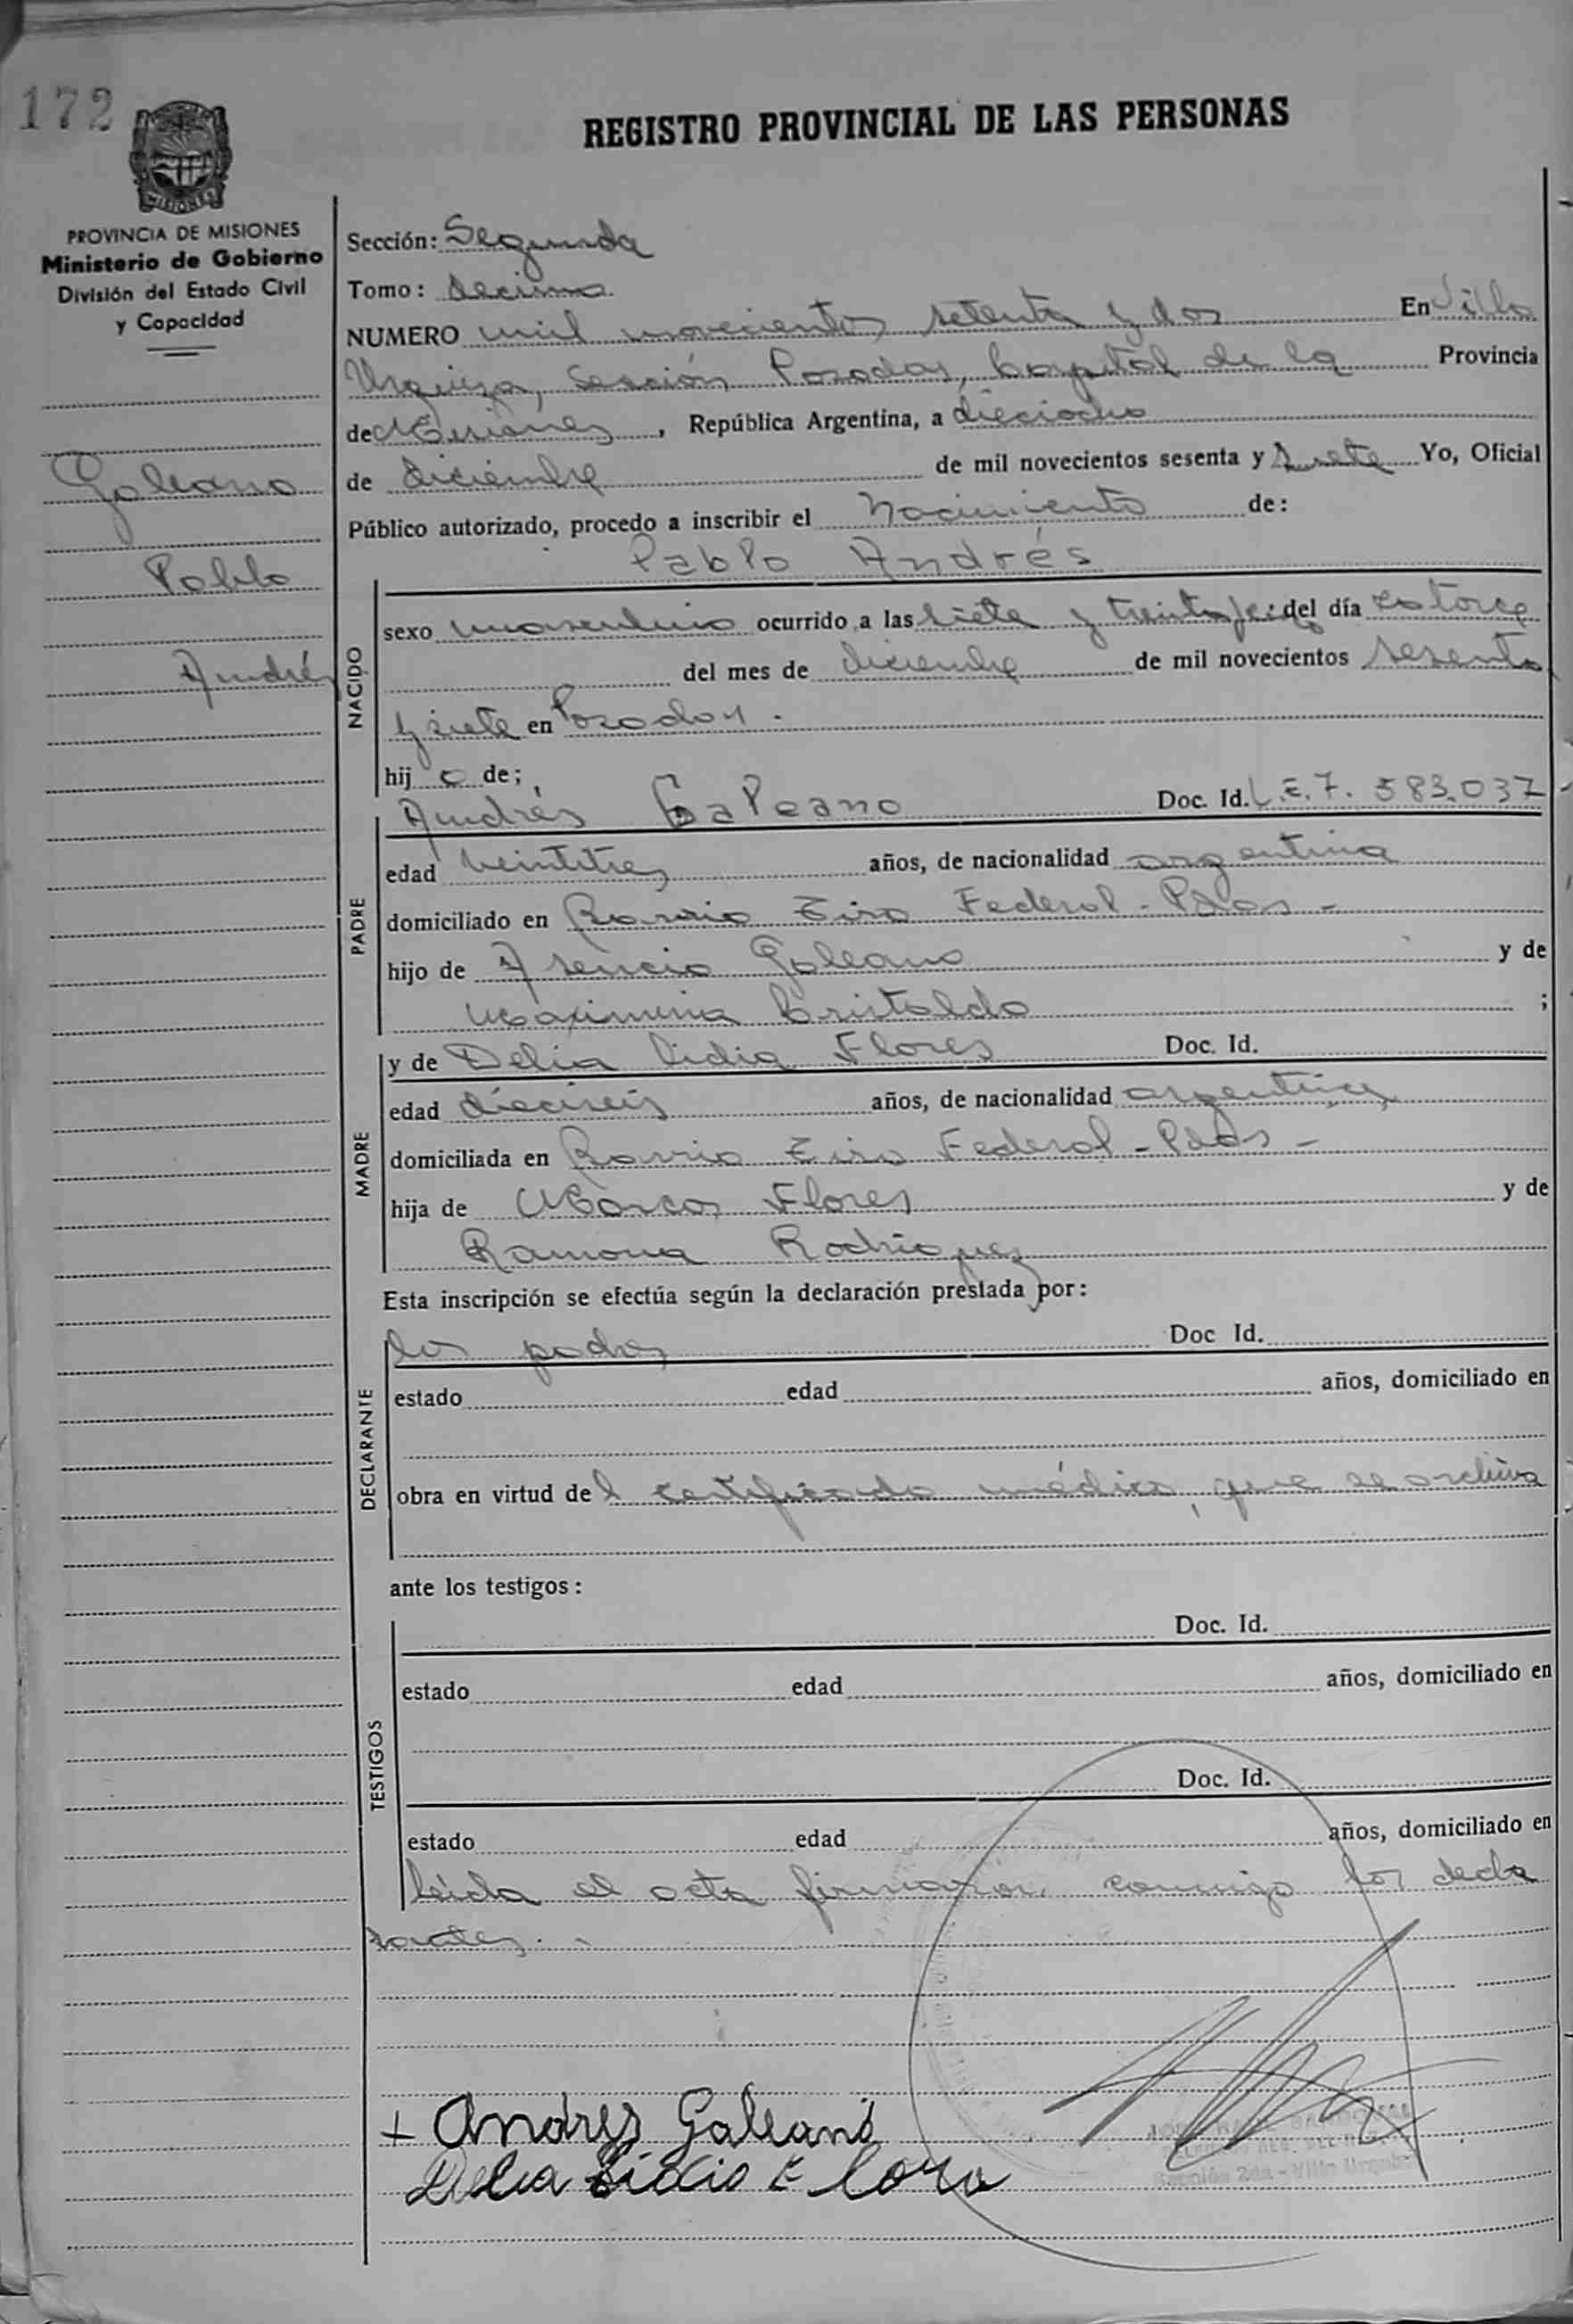 172
REGISTRO PROVINCIAL DE LAS PERSONAS
MISIONES
PROVINCIA DE MISIONES
Ministerio de Gobierno
División del Estado Civil
y Capacidad
Galeano
Pablo
Andrés
Sección: Segunda
Tomo: decimo
NUMERO mil novecientos setenta y dos En Villa
Urquiza, Sección Posadas, Capital de la Provincia
de Misiones, República Argentina, a dieciocho
de diciembre de mil novecientos sesenta y siete Yo, Oficial
Público autorizado, procedo a inscribir el Nacimiento de:
Pablo Andrés
NACIDO
sexo masculino ocurrido a las siete y treinta del día catorce
del mes de diciembre de mil novecientos sesenta
y siete en Posadas.
hijo de;
Andrés Galeano Doc. Id. L.E. 7.583.037
PADRE
edad veintitres años, de nacionalidad argentina
domiciliado en Barrio Tiro Federal - Pdas -
hijo de Asencio Galeano y de
Maximina Cristaldo ;
MADRE
y de Delia Lidia Flores Doc. Id.
edad dieciseis años, de nacionalidad argentina
domiciliada en Barrio Tiro Federal - Pdas -
hija de Marcos Flores y de
Ramona Rodriguez
Esta inscripción se efectúa según la declaración prestada por:
DECLARANTE
los padres Doc Id.
estado edad años, domiciliado en
obra en virtud del certificado médico, que se archiva
ante los testigos:
TESTIGOS
Doc. Id.
estado edad años, domiciliado en
Doc. Id.
estado edad años, domiciliado en
leída el acta firmaron conmigo los decla
rantes.
+ Andres Galeano
Delia Lidia Flora
Sección 2da - Villa Urquiza